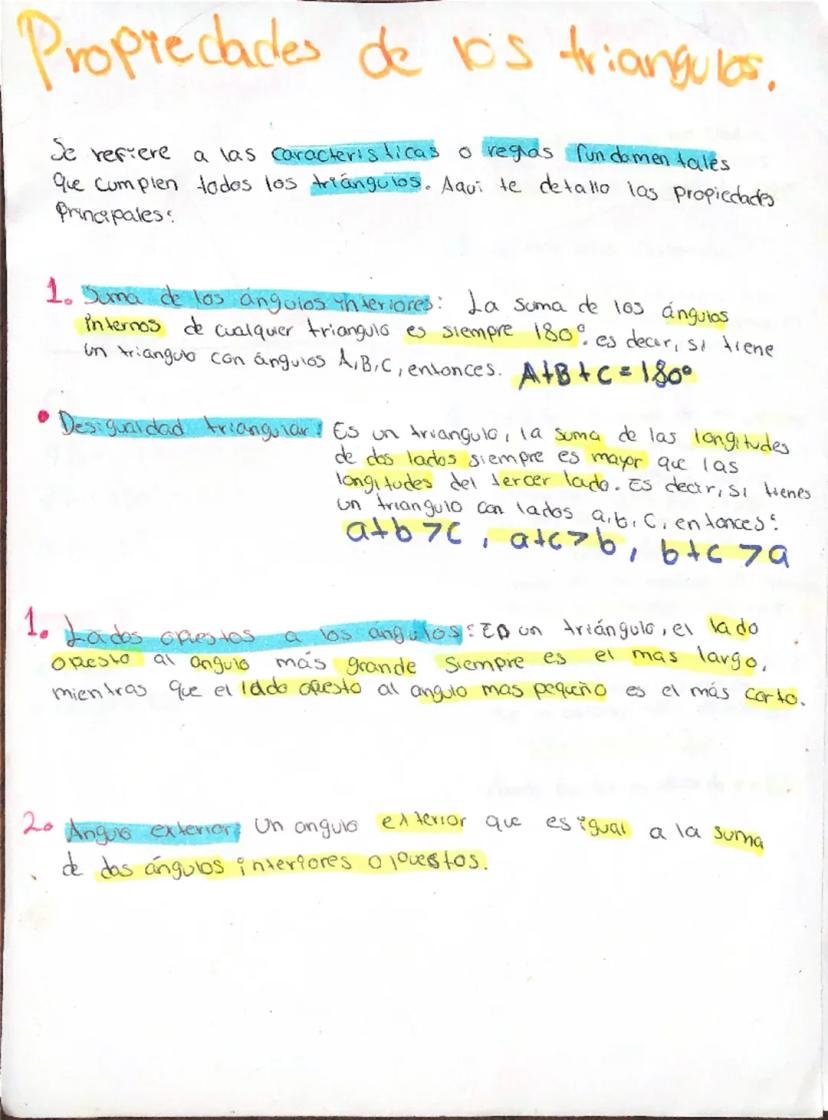 Propiedades de los triangulos.
Se refiere a las caracteristicas o reglas fundamentales
que cumplen todos los triángulos. Aqui te detallo las propiedades
Principales:
1. Suma de los ángulos interiores: La suma de los ángulos
internos de cualquier triangulo es siempre 180°. es decir, si tiene
un triangulo con ángulos A,B,C, entonces. A+B+C=180°
• Desigualdad triangular: Es un triangulo, la suma de las longitudes
de dos lados siempre es mayor que las
longitudes del tercer lado. Es decir, si tienes
un triangulo con lados a,b,C, entonces:
a+b>c, a+c>b, b+c>a
1. Lados opuestos a los ángulos: En un triángulo, el lado
opuesto al angulo más grande siempre es el mas largo,
mientras que el lado opuesto al angulo mas pequeño es el más corto.
2. Angulo exterior: Un angulo exterior que es igual a la suma
de dos ángulos interiores opuestos.